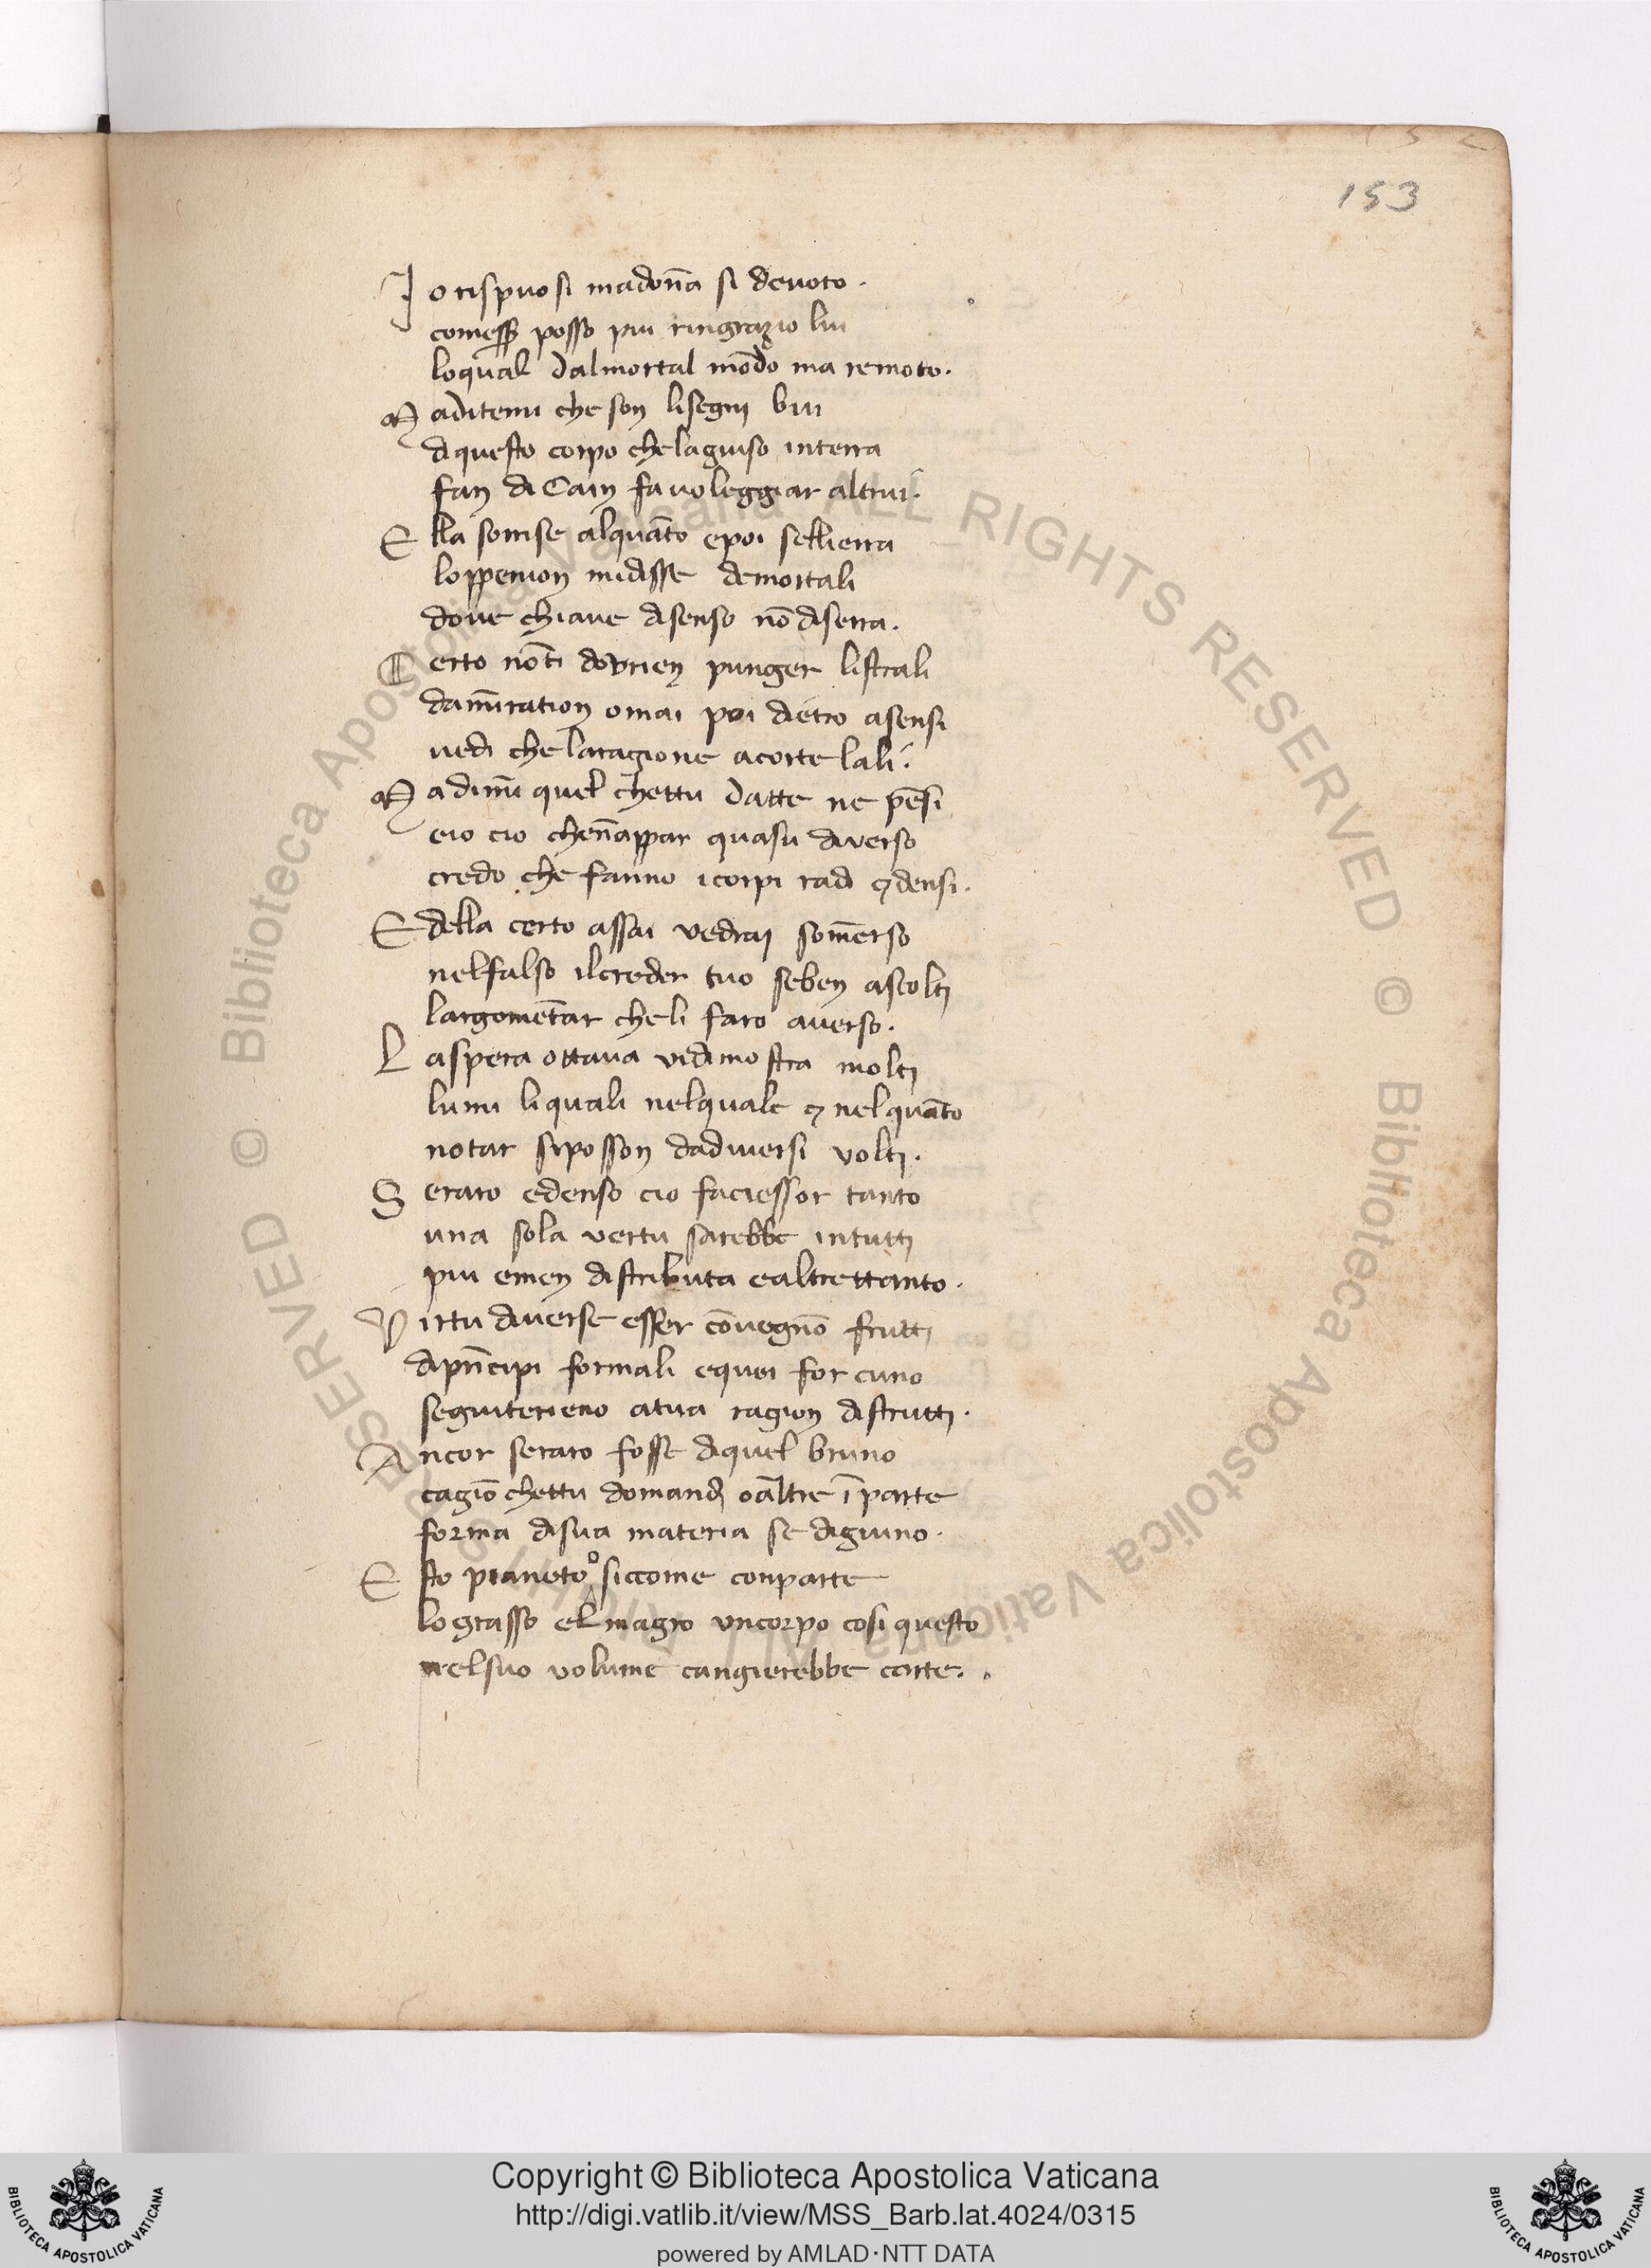 153
Io rispuosi madon̄a si deuoto.
comesſ posso piu ringrazio lui
loqual dalmortal mōdo ma remoto.
Maditemi che son lisegni bui
diquesto corpo chelagiuso interra
fan di Cain fauoleggiar altrui.
Ella sorrise alquāto epoi sellierra
loppenion midisse demortali
doue chiaue disenso nō diserra.
Certo nōti dovrien punger listrali
damīration omai poi dietro asensi
uedi chelaragione acorte lali.
Madimī quel chettu datte ne pēsi
eio cio chen̄appar quasu diverso
credo che fanno icorpi radi ⁊densi.
Edella certo assai vedrai som̄erso
nelfalso ilcreder tuo seben ascolti
largomētar cheli faro auerso.
Laspera ottaua vidimostra molti
lumi liquali nelquale ⁊ nelquāto
notar siposson dadiuersi volti.
Seraro edenso cio faciessor tanto
una sola vertu sarebbe intutti
piu emen distributa ealtrettanto.
Virtu diuerse esser cōuegnō frutti
dipn̄cipi formali equei for cuno
seguiterieno atua ragion distrutti.
Ancor seraro fosse diquel bruno
cagiō chettu domandi oāltre ī parte
forma disua materia se digiuno.
Esto pianeto o siccome conparte
lograsso el magro vncorpo cosi questo
nelsuo volume cangierebbe carte.
Copyright © Biblioteca Apostolica Vaticana
http://digi.vatlib.it/view/MSS_Barb.lat.4024/0315
powered by AMLAD·NTT DATA
BIBLIOTECA APOSTOLICA VATICANA
BIBLIOTECA APOSTOLICA VATICANA
© Biblioteca Apostolica Vaticana ALL RIGHTS RESERVED © Biblioteca Apostolica Vaticana ALL RIGHTS RESERVED